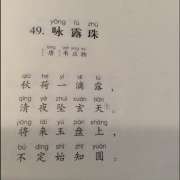 yǒng lù zhū
49. 咏露珠
[唐] 韦应物
qiū hé yì dī lù
秋荷一滴露，
qīng yè zhuì xuán tiān
清夜坠玄天。
jiāng lái yù pán shàng
将来玉盘上，
bú dìng shǐ zhī yuán
不定始知圆。